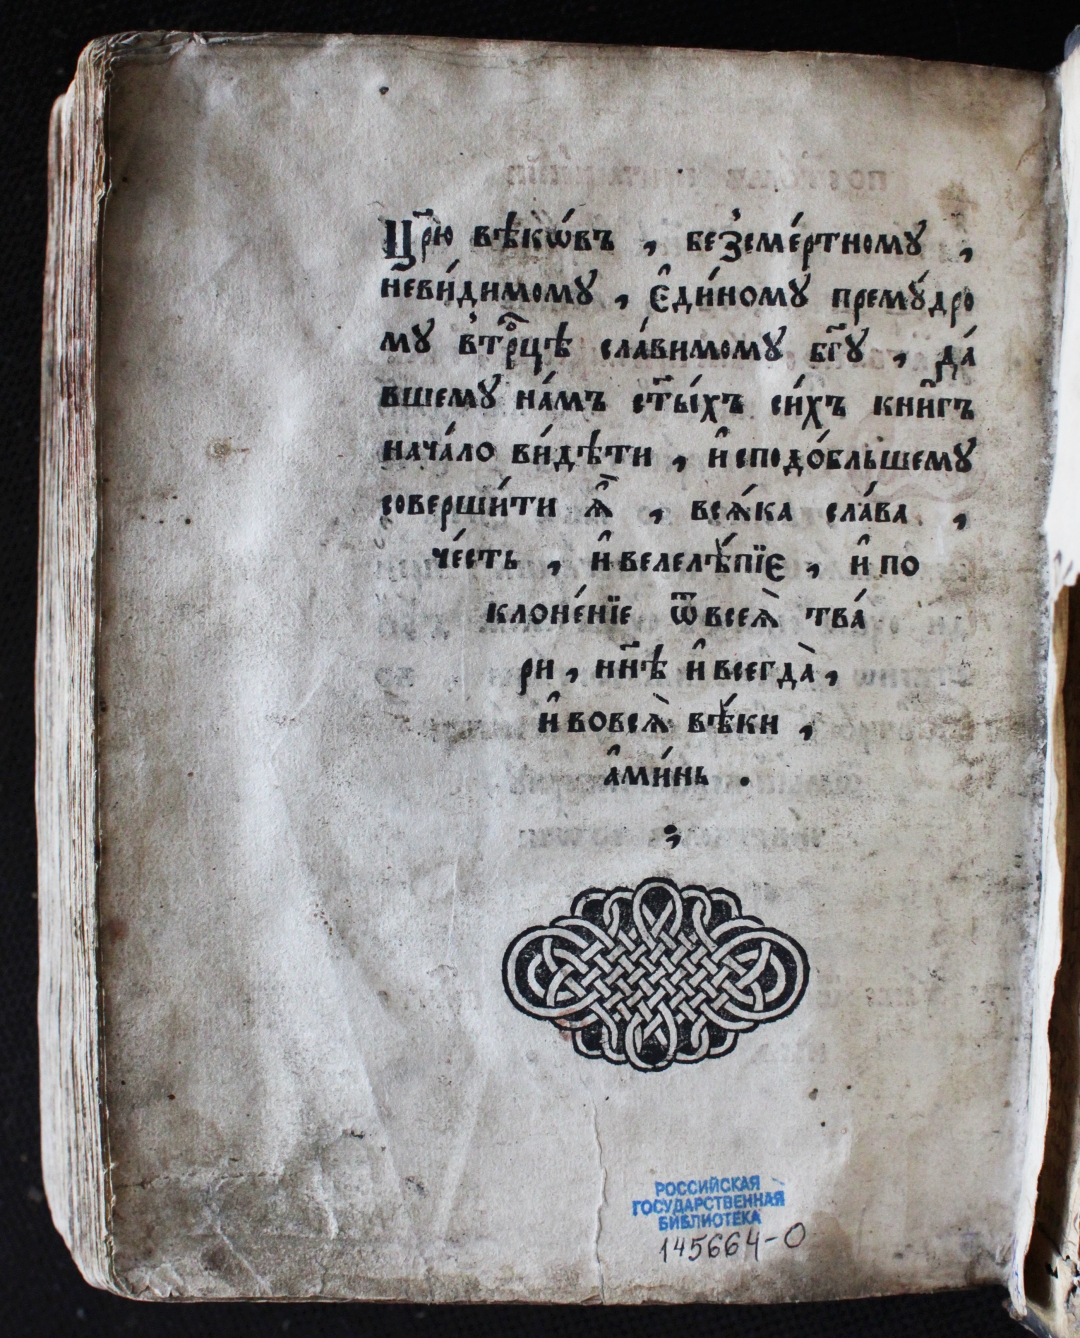 Цр҃ю вѣкѡ́въ , беꙁсме́ртному ,
неви́димому , є҆ди́ному прему́дро
му в҆трⷪ҇цѣ сла́вимому бг҃у , да́
вшему на́мъ ст҃ы́хъ си́хъ кни҃гъ
нача́ло ви́дѣти , и҆ сподо́бльшему
соверши́ти ꙗ҆̀ , всѧ́ка сла́ва ,
че́сть , и҆ велелѣ́пїє , и҆ по
клоне́нїе ѿ всеѧ̀ тва́
ри , нн҃ѣ и҆ всегда̀ ,
и҆ во всѧ̀ вѣ́ки ,
а҆ми́нь .
РОССИЙСКАЯ
ГОСУДАРСТВЕННАЯ
БИБЛИОТЕКА
145664-О